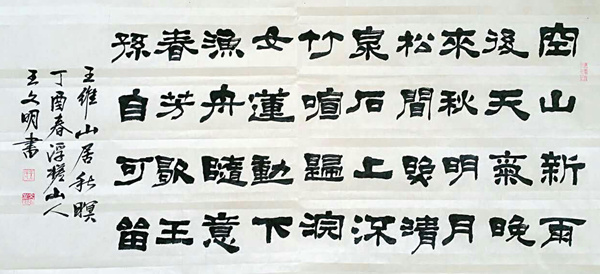 空山新雨
後天氣晚
來秋明月
松間照清
泉石上流
竹喧歸浣
女蓮動下
漁舟隨意
春芳歇王
孫自可留
王維山居秋暝
丁酉春浮槎山人
王文明書